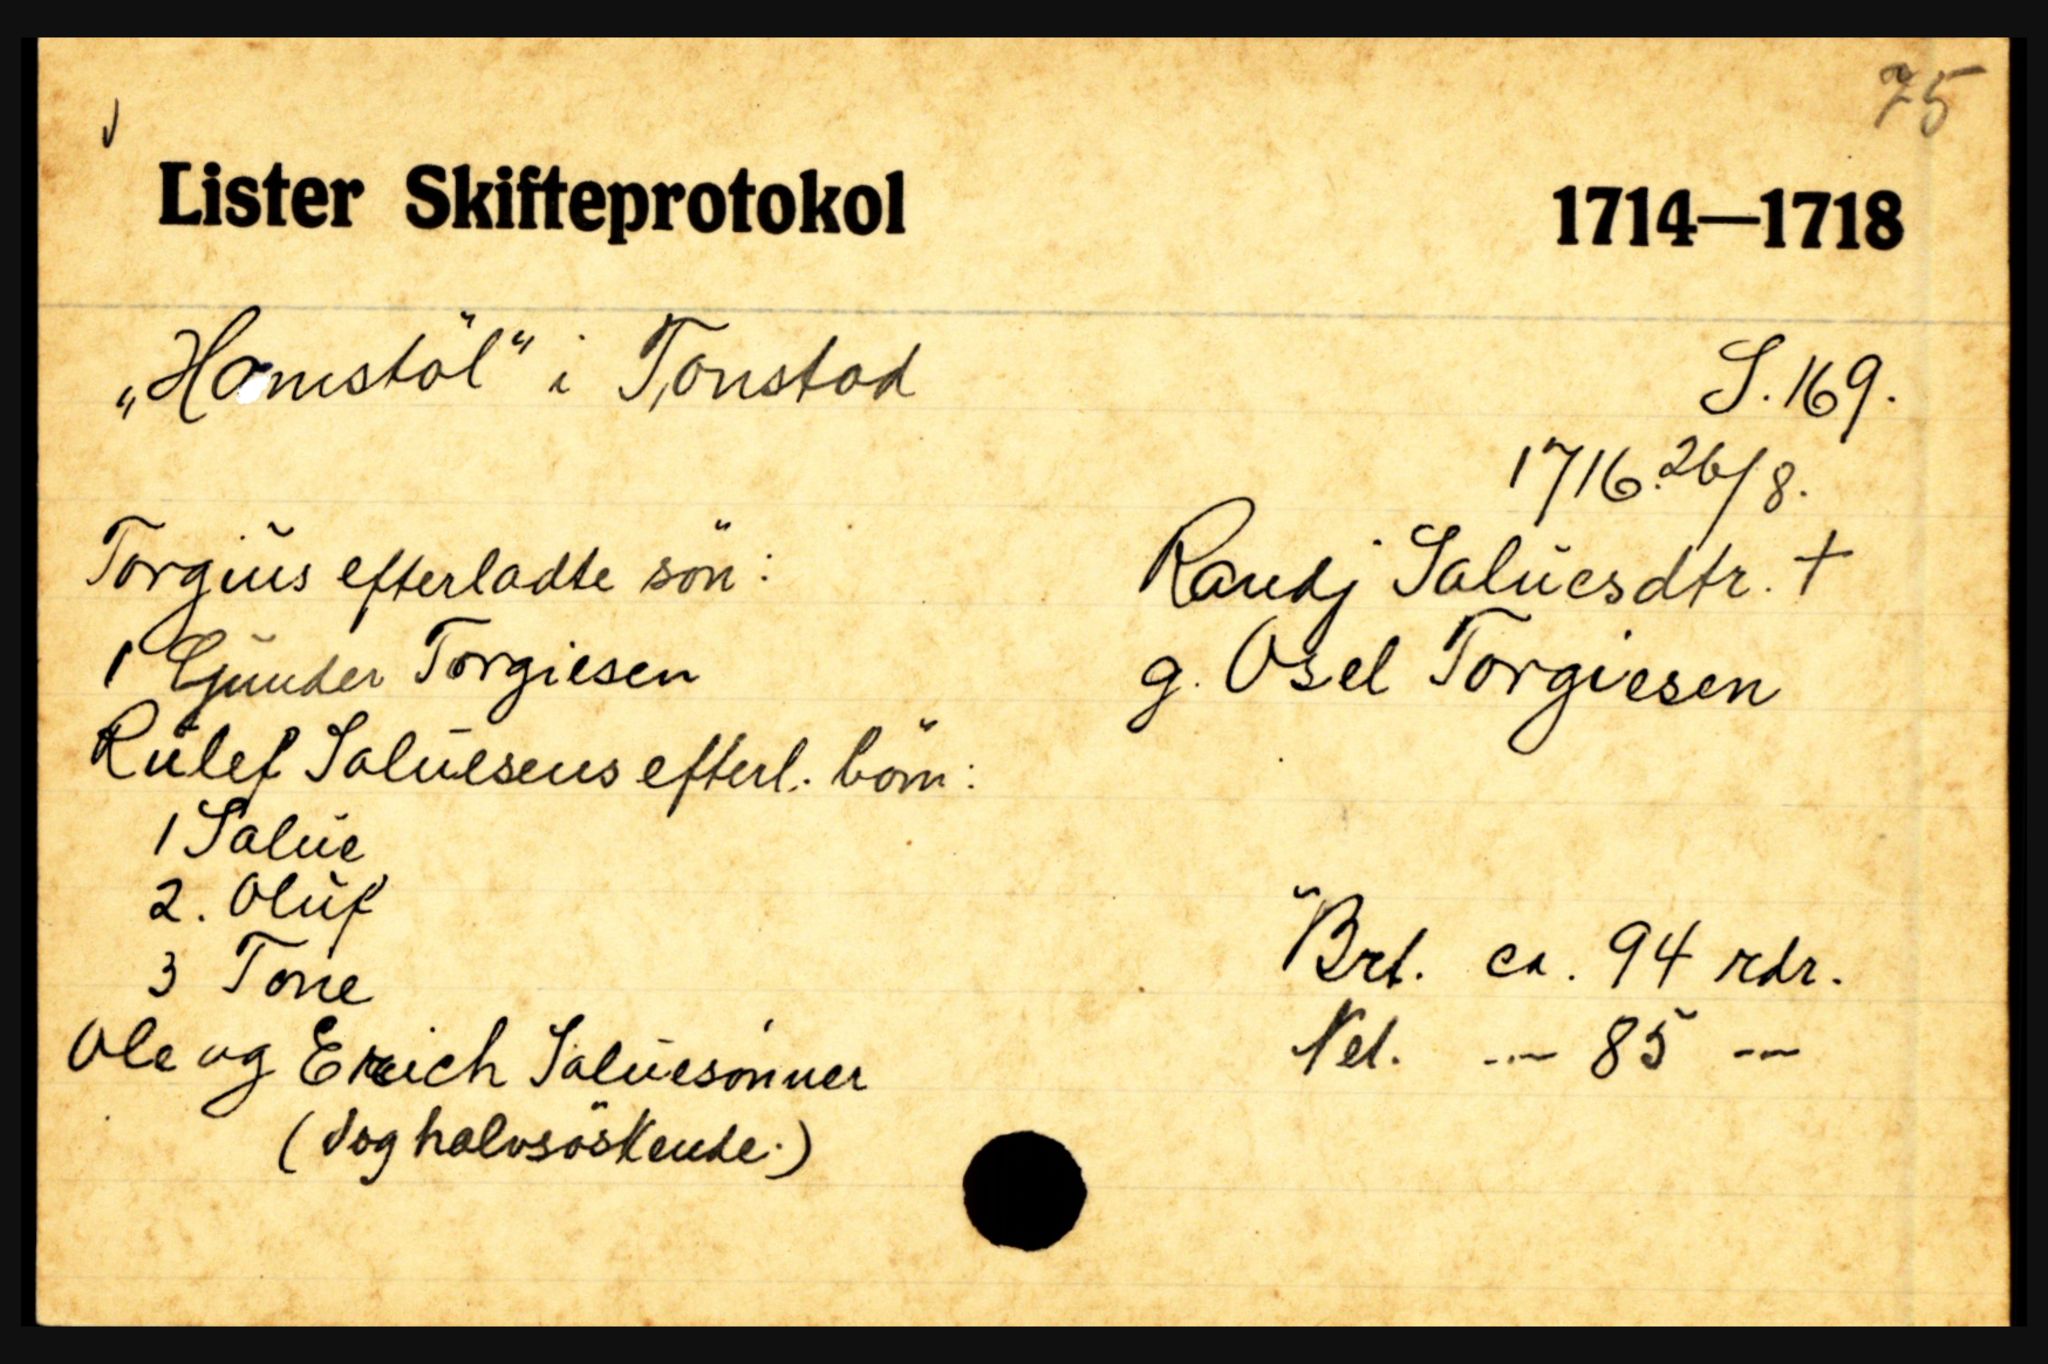 75
Lister Skifteprotokol 1714—1718
„Homstöl“ i Tonstad
S. 169.
1716. 26/8.
Torgius efterladte sön:
1 Gunder Torgiesen
Rulef Saluesens efterl. börn:
1 Salue
2. Oluf
3 Tone
Ole og Erich Saluesönner
( og halvsöskende.)
Randj Saluesdtr. +
g. Osel Torgiesen
Brt. ca. 94 rdr.
Net. -"- 85 -"-